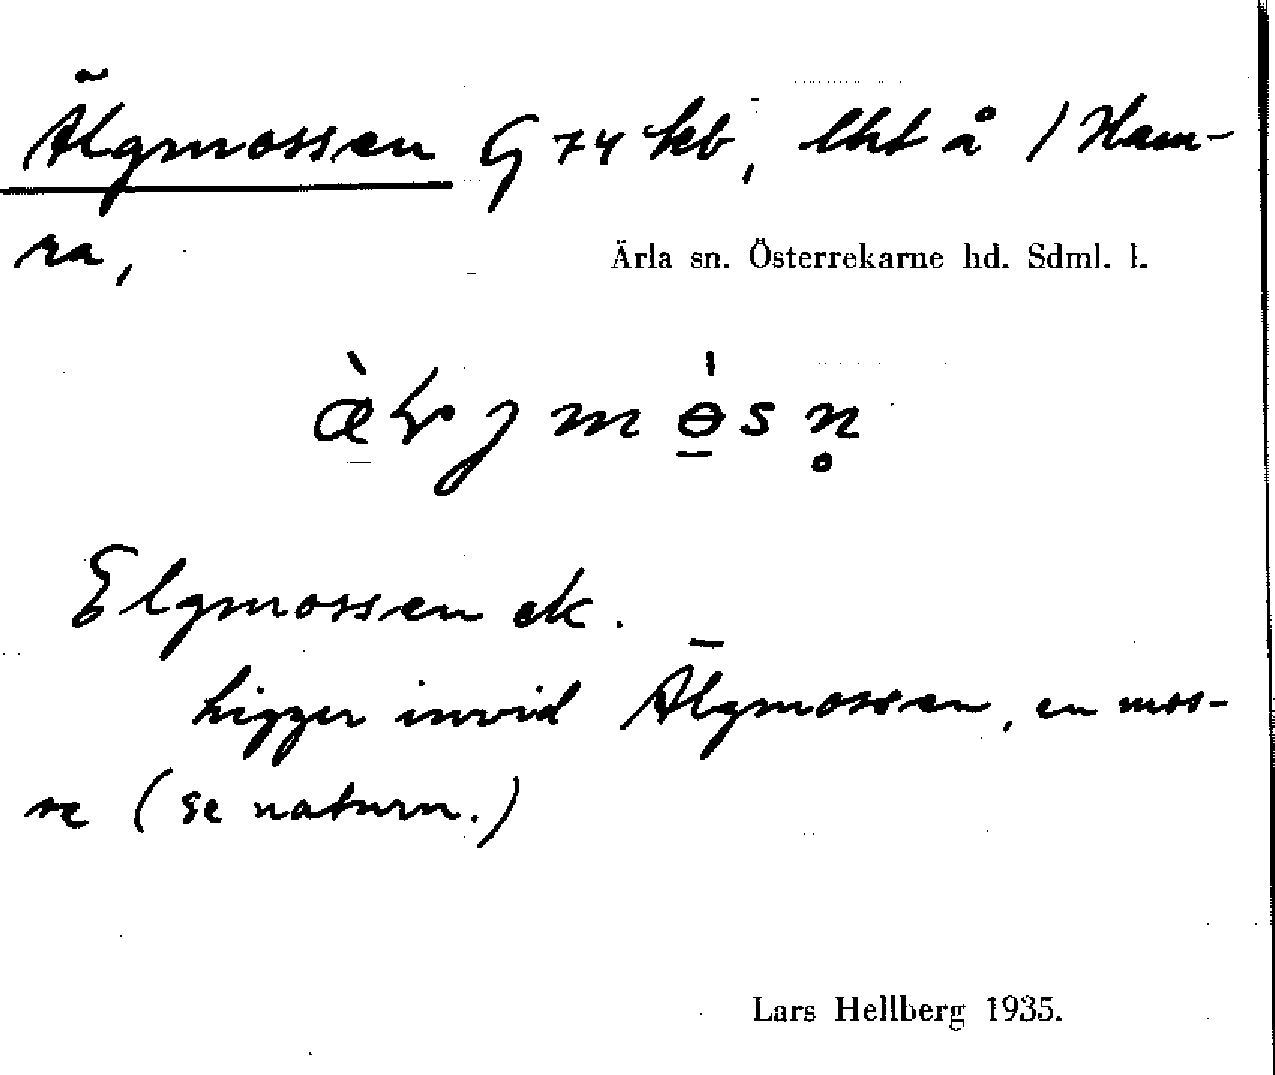 Älgmossen G 74 kb, lht å 1 Ham-
ra,
Ärla sn. Österrekarne hd. Sdml. l.
Elgmossen ek.
Ligger invid Älgmossen, en mos-
se (se naturn.)
Lars Hellberg 1935.